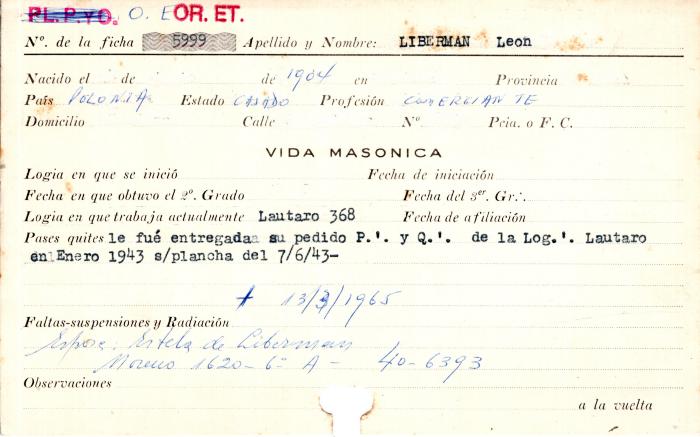 PL.P.yO. O. E OR. ET.
Nº. de la ficha 5999 Apellido y Nombre: LIBERMAN Leon
Nacido el de de 1904 en Provincia
País POLONIA Estado CASADO Profesión COMERCIANTE
Domicilio Calle Nº Pcia. o F. C.
VIDA MASONICA
Logia en que se inició Fecha de iniciación
Fecha en que obtuvo el 2º. Grado Fecha del 3er. Gr∴
Logia en que trabaja actualmente Lautaro 368 Fecha de afiliación
Pases quites le fué entregadaa su pedido P.'. y Q.'. de la Log.'. Lautaro
en Enero 1943 s/plancha del 7/6/43-
† 13/3/1965
Faltas-suspensiones y Radiación
Esposa: Estela de Liberman
Moreno 1620-6º A - 40-6393
Observaciones
a la vuelta